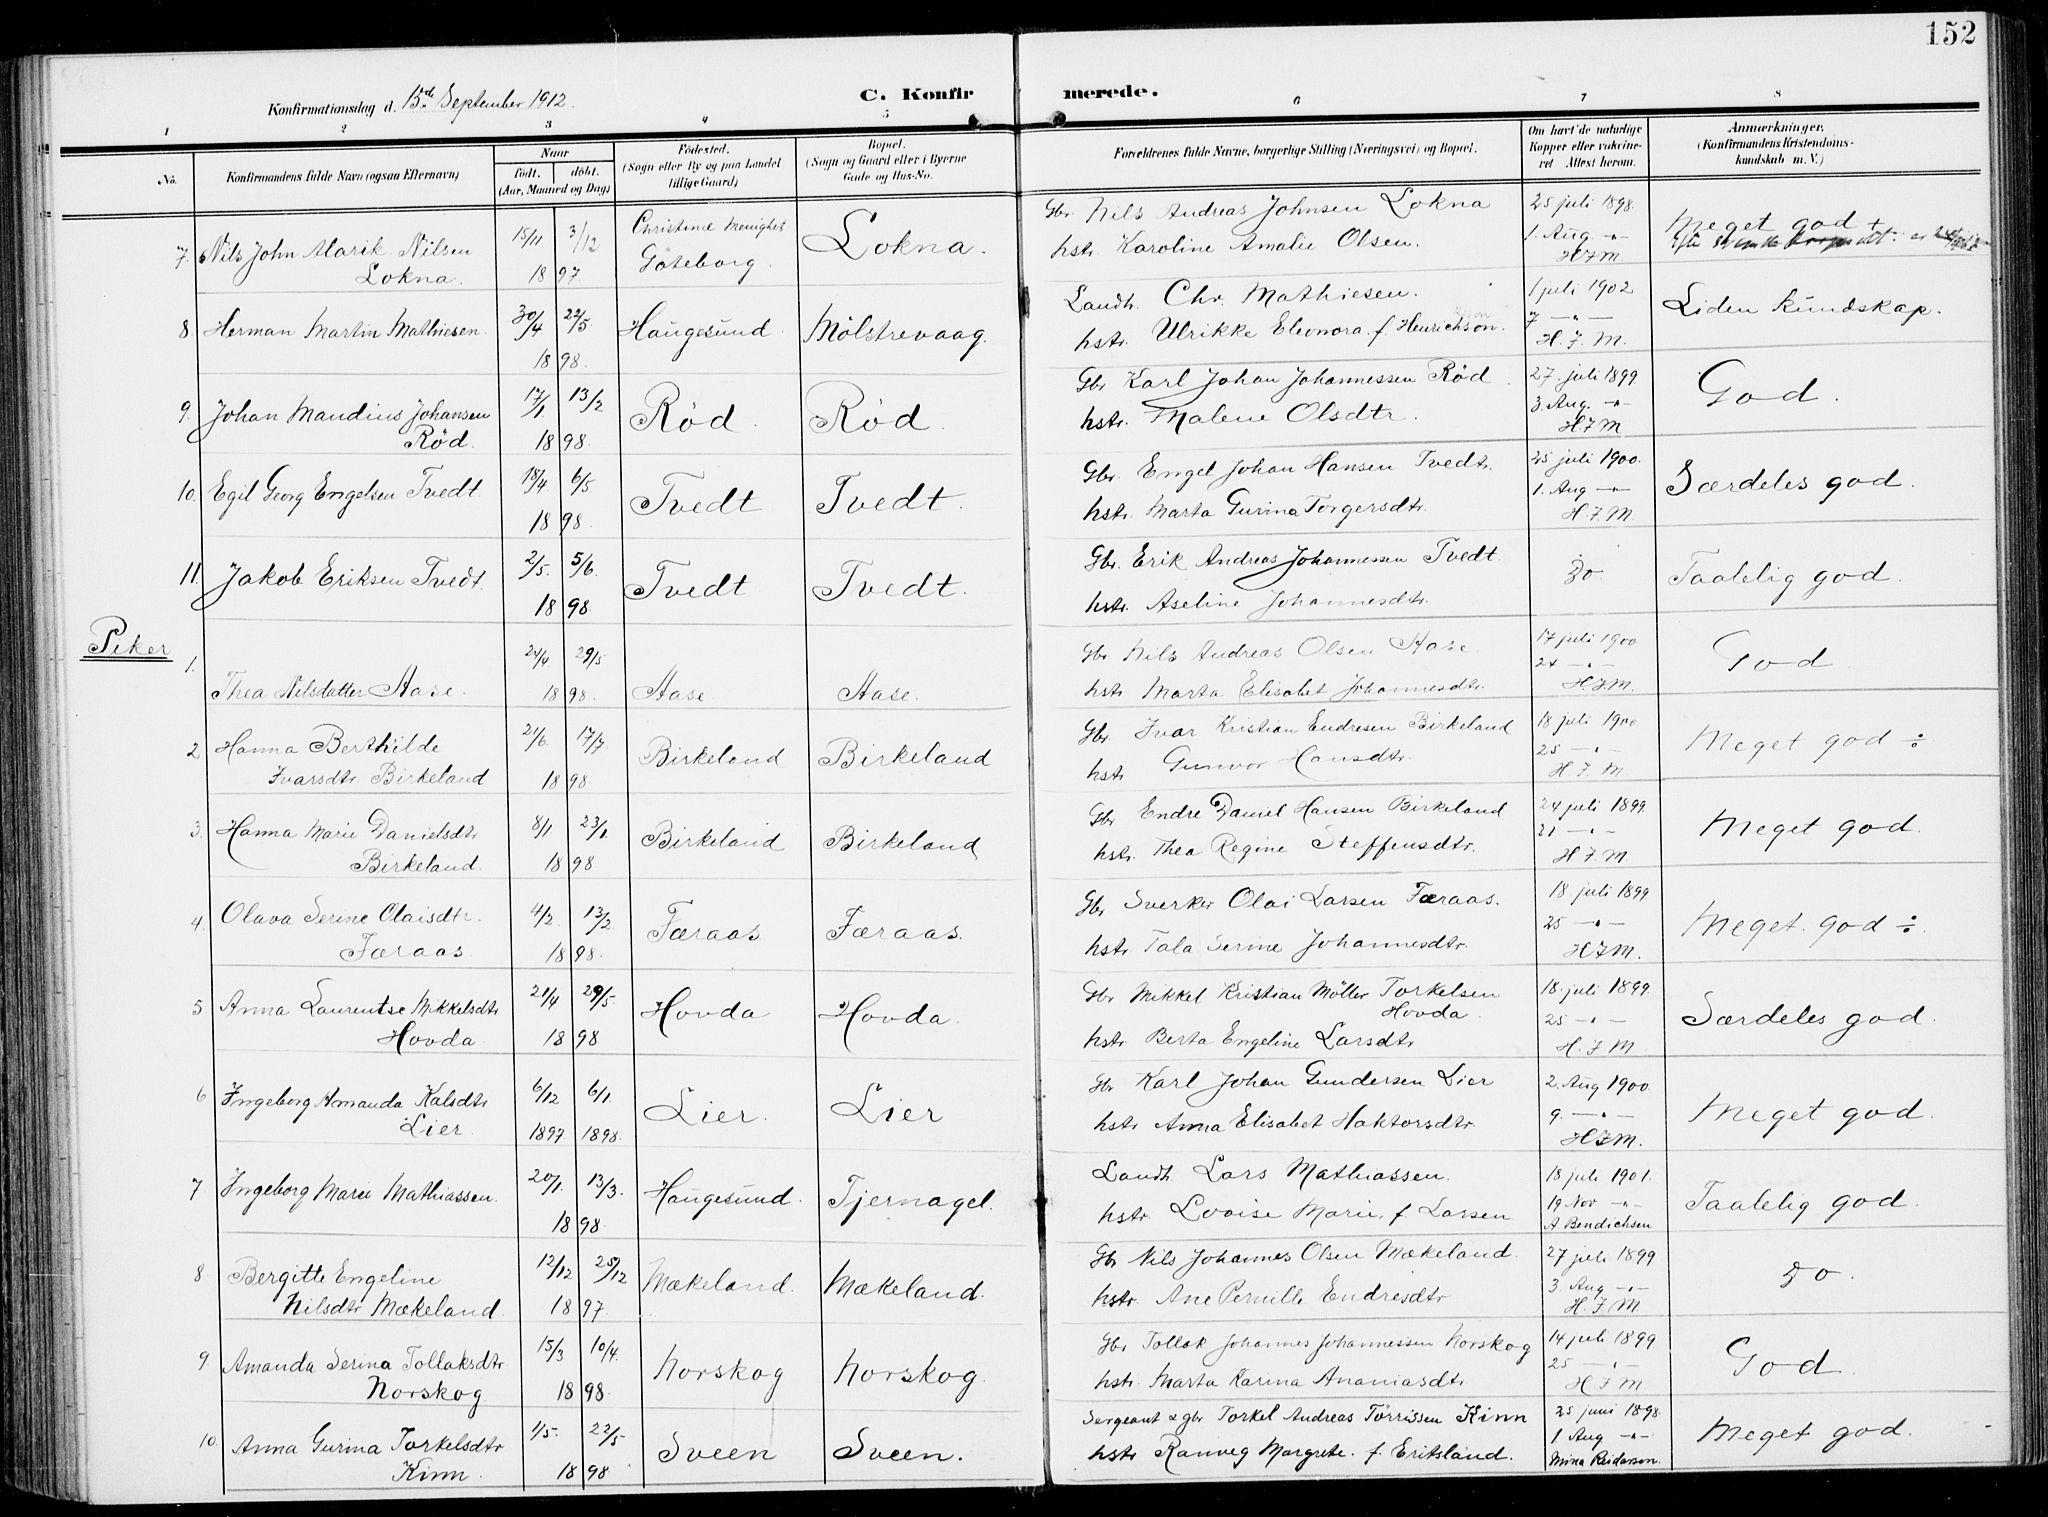 152
Konfirmationsdag d. 15de September 1912.
C. Konfirmerede.
1 2 3 4 5 6 7 8
No.
Konfirmandens fulde Navn (ogsaa Efternavn)
Naar
födt. döbt.
(Aar, Maaned og Dag)
Födested.
(Sogn eller By og paa Landet
tillige Gaard)
Bopæl.
(Sogn og Gaard eller i Byerne
Gade og Hus-No.
Forældrenes fulde Navne, borgerlige Stilling (Næringsvei) og Bopæl.
Om havt de naturlige
Kopper eller vakcine-
ret Attest herom.
Anmærkninger.
(Konfirmandens Kristendoms-
kundskab m. V.)
7. Nils John Alarik Nilsen 15/11 3/12 Christinæ Menighet Lokna. Gbr. Nils Andreas Johnsen Lokna 25 juli 1898. Meget god +
Lokna. 18 97 Göteborg. hstr. Karoline Amalie Olsen. 1. Aug -"-
HFM
8. Herman Martin Mathiesen. 30/4 22/5 Haugesund Mølstrevaag. Landh. Chr. Mathiesen. 1 juli 1902 Liden kundskap.
18 98. hstr. Ulrikke Eleonora f. Henrichson. 7 -"-
H. F. M.
9. Johan Mandius Johansen 17/1 13/2 Rød. Rød. Gbr Karl Johan Johannessen Rød. 27. juli 1899. God.
Rød. 18 98. hstr. Malene Olsdtr. 3. Aug. -"-
HFM
10. Egil Georg Engelsen Tvedt. 18/4 6/5 Tvedt. Tvedt. Gbr. Engel Johan Hansen Tvedt. 25 juli 1900. Særdeles god.
18 98. hstr. Marta Gurina Torgersdtr. 1. Aug -"-
H.F.M
11. Jakob Eriksen Tvedt. 2/5. 5/6. Tvedt Tvedt. Gbr. Erik Andreas Johannessen Tvedt. Do. Taalelig god.
18 98. hstr. Aseline Johannesdtr.
Piker
1. Thea Nilsdatter Aase. 24/4 29/5 Aase Aase. Gbr Nils Andreas Olsen Aase 17 juli 1900 God
18 98. hstr Marta Elisabet Johannesdtr. 24 -"-
HFM.
2 Hanna Berthilde 21/6. 17/7 Birkeland Birkeland Gbr. Ivar Kristian Endresen Birkeland 18 juli 1900 Meget god ÷
Ivarsdtr. Birkeland 18 98. hstr Gunvor Hansdtr. 25 -"-
H F M
3. Hanna Marie Danielsdtr 8/1 23/1 Birkeland Birkeland Gbr Endre Daniel Hansen Birkeland 24 juli 1899. Meget god.
Birkeland. 18 98. hstr. Thea Regine Steffensdtr. 31 -"-
H F M
4. Olava Serine Olaisdtr. 4/2. 13/2 Færaas Færaas. Gbr Sverker Olai Larsen Færaas. 18 juli 1899. Meget god ÷.
Færaas 18 98. hstr. Tala Serine Johannesdtr. 25 -"-
HFM.
5 Anna Laurentse Mikkelsdtr 21/4 29/5 Hovda Hovda. Gbr Mikkel Kristian Möller Torkelsen 18. juli 1899. Særdeles god.
Hovda. 18 98 Hovda. 25 -"-
hstr Berta Engeline Larsdtr H. F. M
6 Ingeborg Amanda Kalsdtr 6/12 6/1. Lier. Lier Gbr Karl Johan Gundersen Lier 2. Aug 1900. Meget god.
Lier 1897 1898. hstr Anna Elisabet Haktorsdtr. 9. -"-
HFM.
7 Ingeborg Marie Mathiassen. 20/1. 13/3. Haugesund. Tjernagel. Landh. Lars Mathiassen. 18 juli 1901. Taalelig god.
18 98. hstr. Lovise Marie. f. Larsen 19 Nov -"-
A Bendichsen
8 Bergitte Engeline 12/12 25/12 Mækeland. Mækeland. Gbr Nils Johannes Olsen Mækeland. 27 juli 1899 Do.
Nilsdtr Mækeland. 18 97. hstr. Ane Pernille Endresdtr 3 Aug -"-
H. F. M
9 Amanda Serina Tollaksdtr 15/3 10/4. Norskog Norskog. Gbr Tollak Johannes Johannessen Norskog 14 juli 1899 God.
Norskog 18 98. hstr. Marta Karina Ananiasdtr 25 -"-
H F M
10. Anna Gurina Torkelsdtr 1/5. 22/5 Sveen Sveen. Sergeant & gbr Torkel Andreas Törrissen Kinn 25 juni 1898. Meget god.
Kinn. 18 98 hstr Ranveg Margrete. f. Eritsland. 1 Aug -"-
Mina Reidarson.